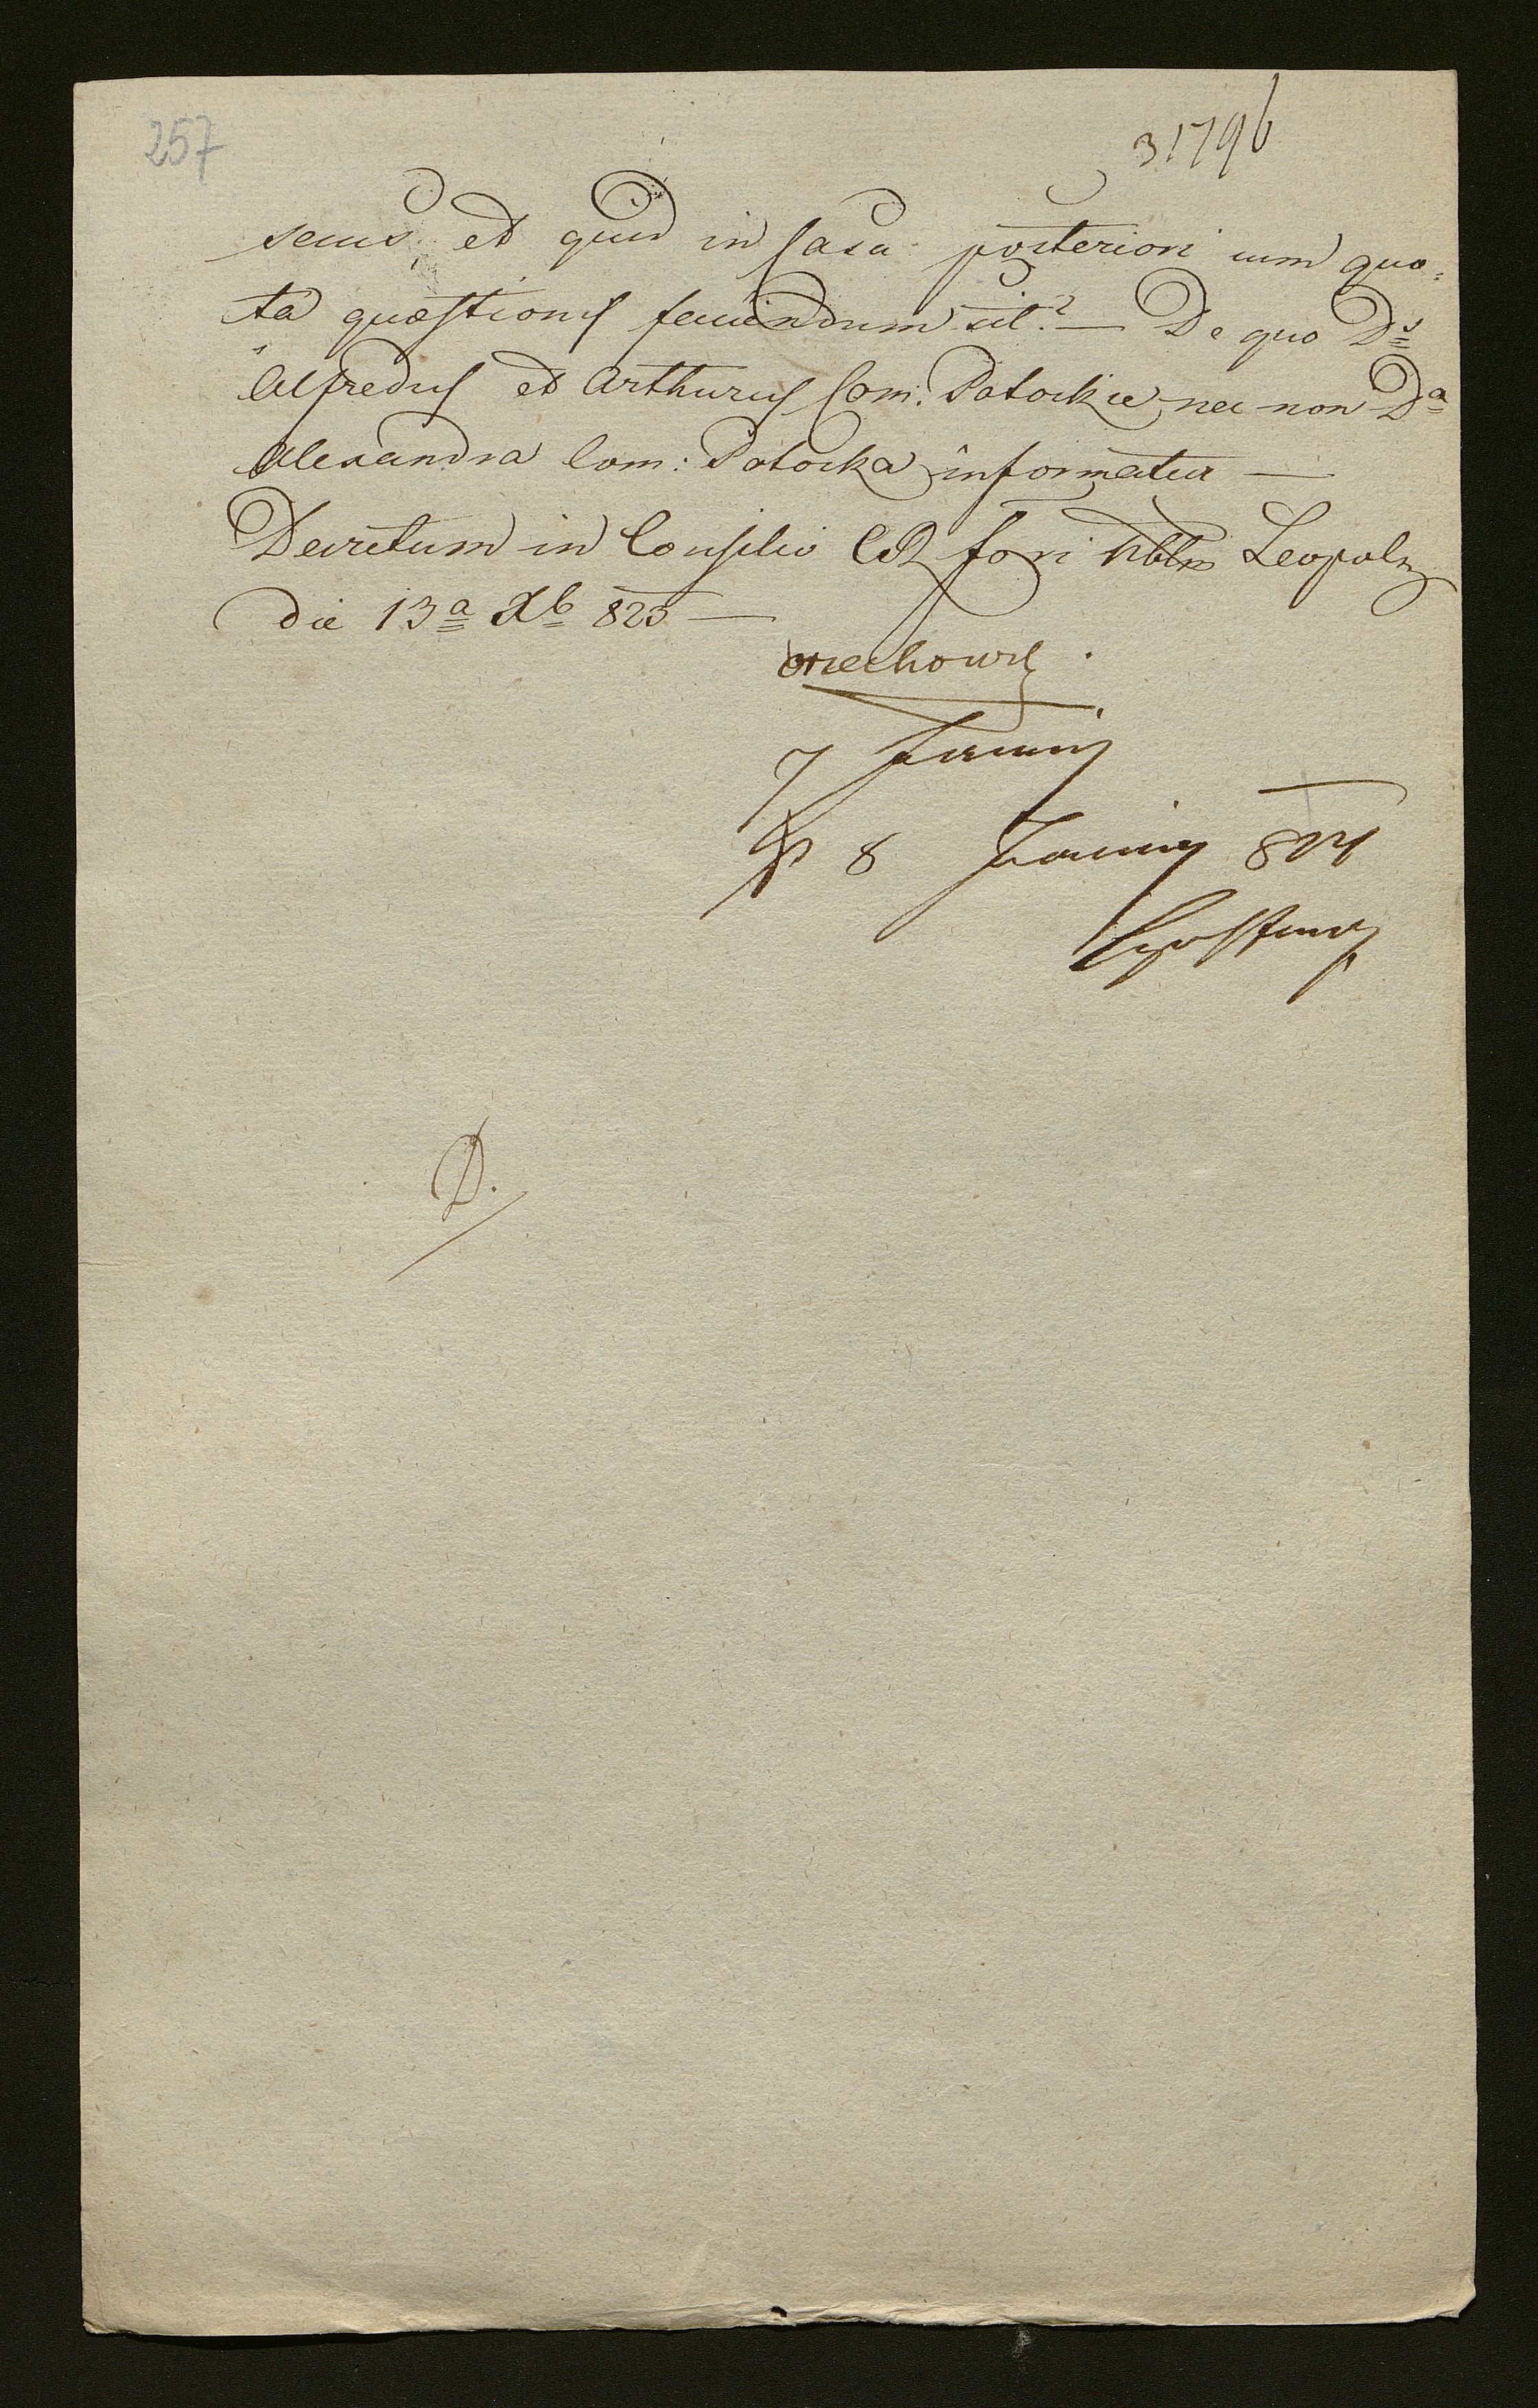 257
31796
secus et quid in casu posteriori cum quo=
ta quæstionis faciendum sit? — De quo Ds
Alfredus et Arthurus Com: Potockie nec non Da
Alexandra Com: Potocka informatur —
Decretum in Consilio CR fori Nblm Leopoln
die 13a Xb 823 —
Orzechowsk
7 January
8 January 824
D.